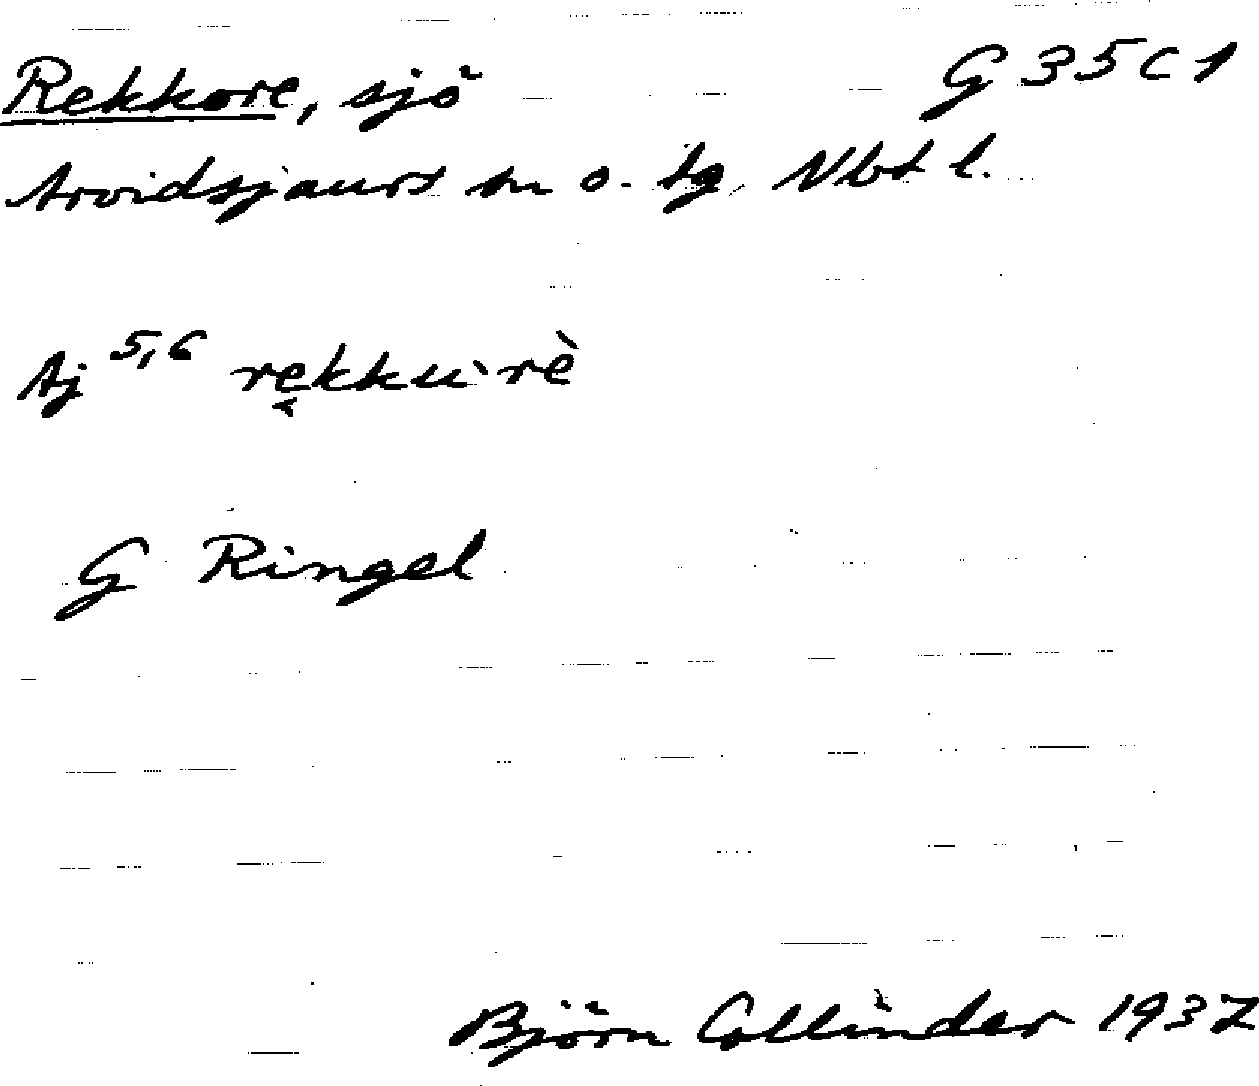 Rekkore, sjö G 35 C 1
Arvidsjaurs sn o. tg, Nbt l.
Aj 5,6 rękku`rè
G Ringel
Björn Collinder 1937